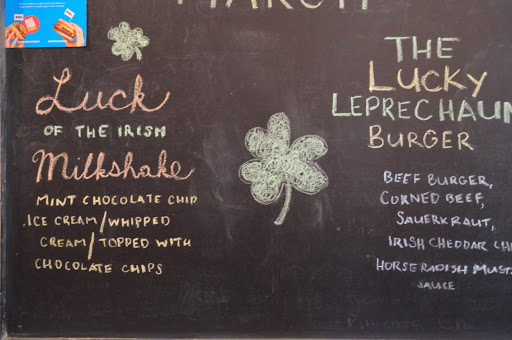 MARCH
Luck
OF THE IRISH
Milkshake
MINT CHOCOLATE CHIP
ICE CREAM/WHIPPED
CREAM/TOPPED WITH
CHOCOLATE CHIPS
THE
LUCKY
LEPRECHAUN
BURGER
BEEF BURGER,
CORNED BEEF,
SAUERKRAUT,
IRISH CHEDDAR CH
HORSERADISH MUST
SAUCE